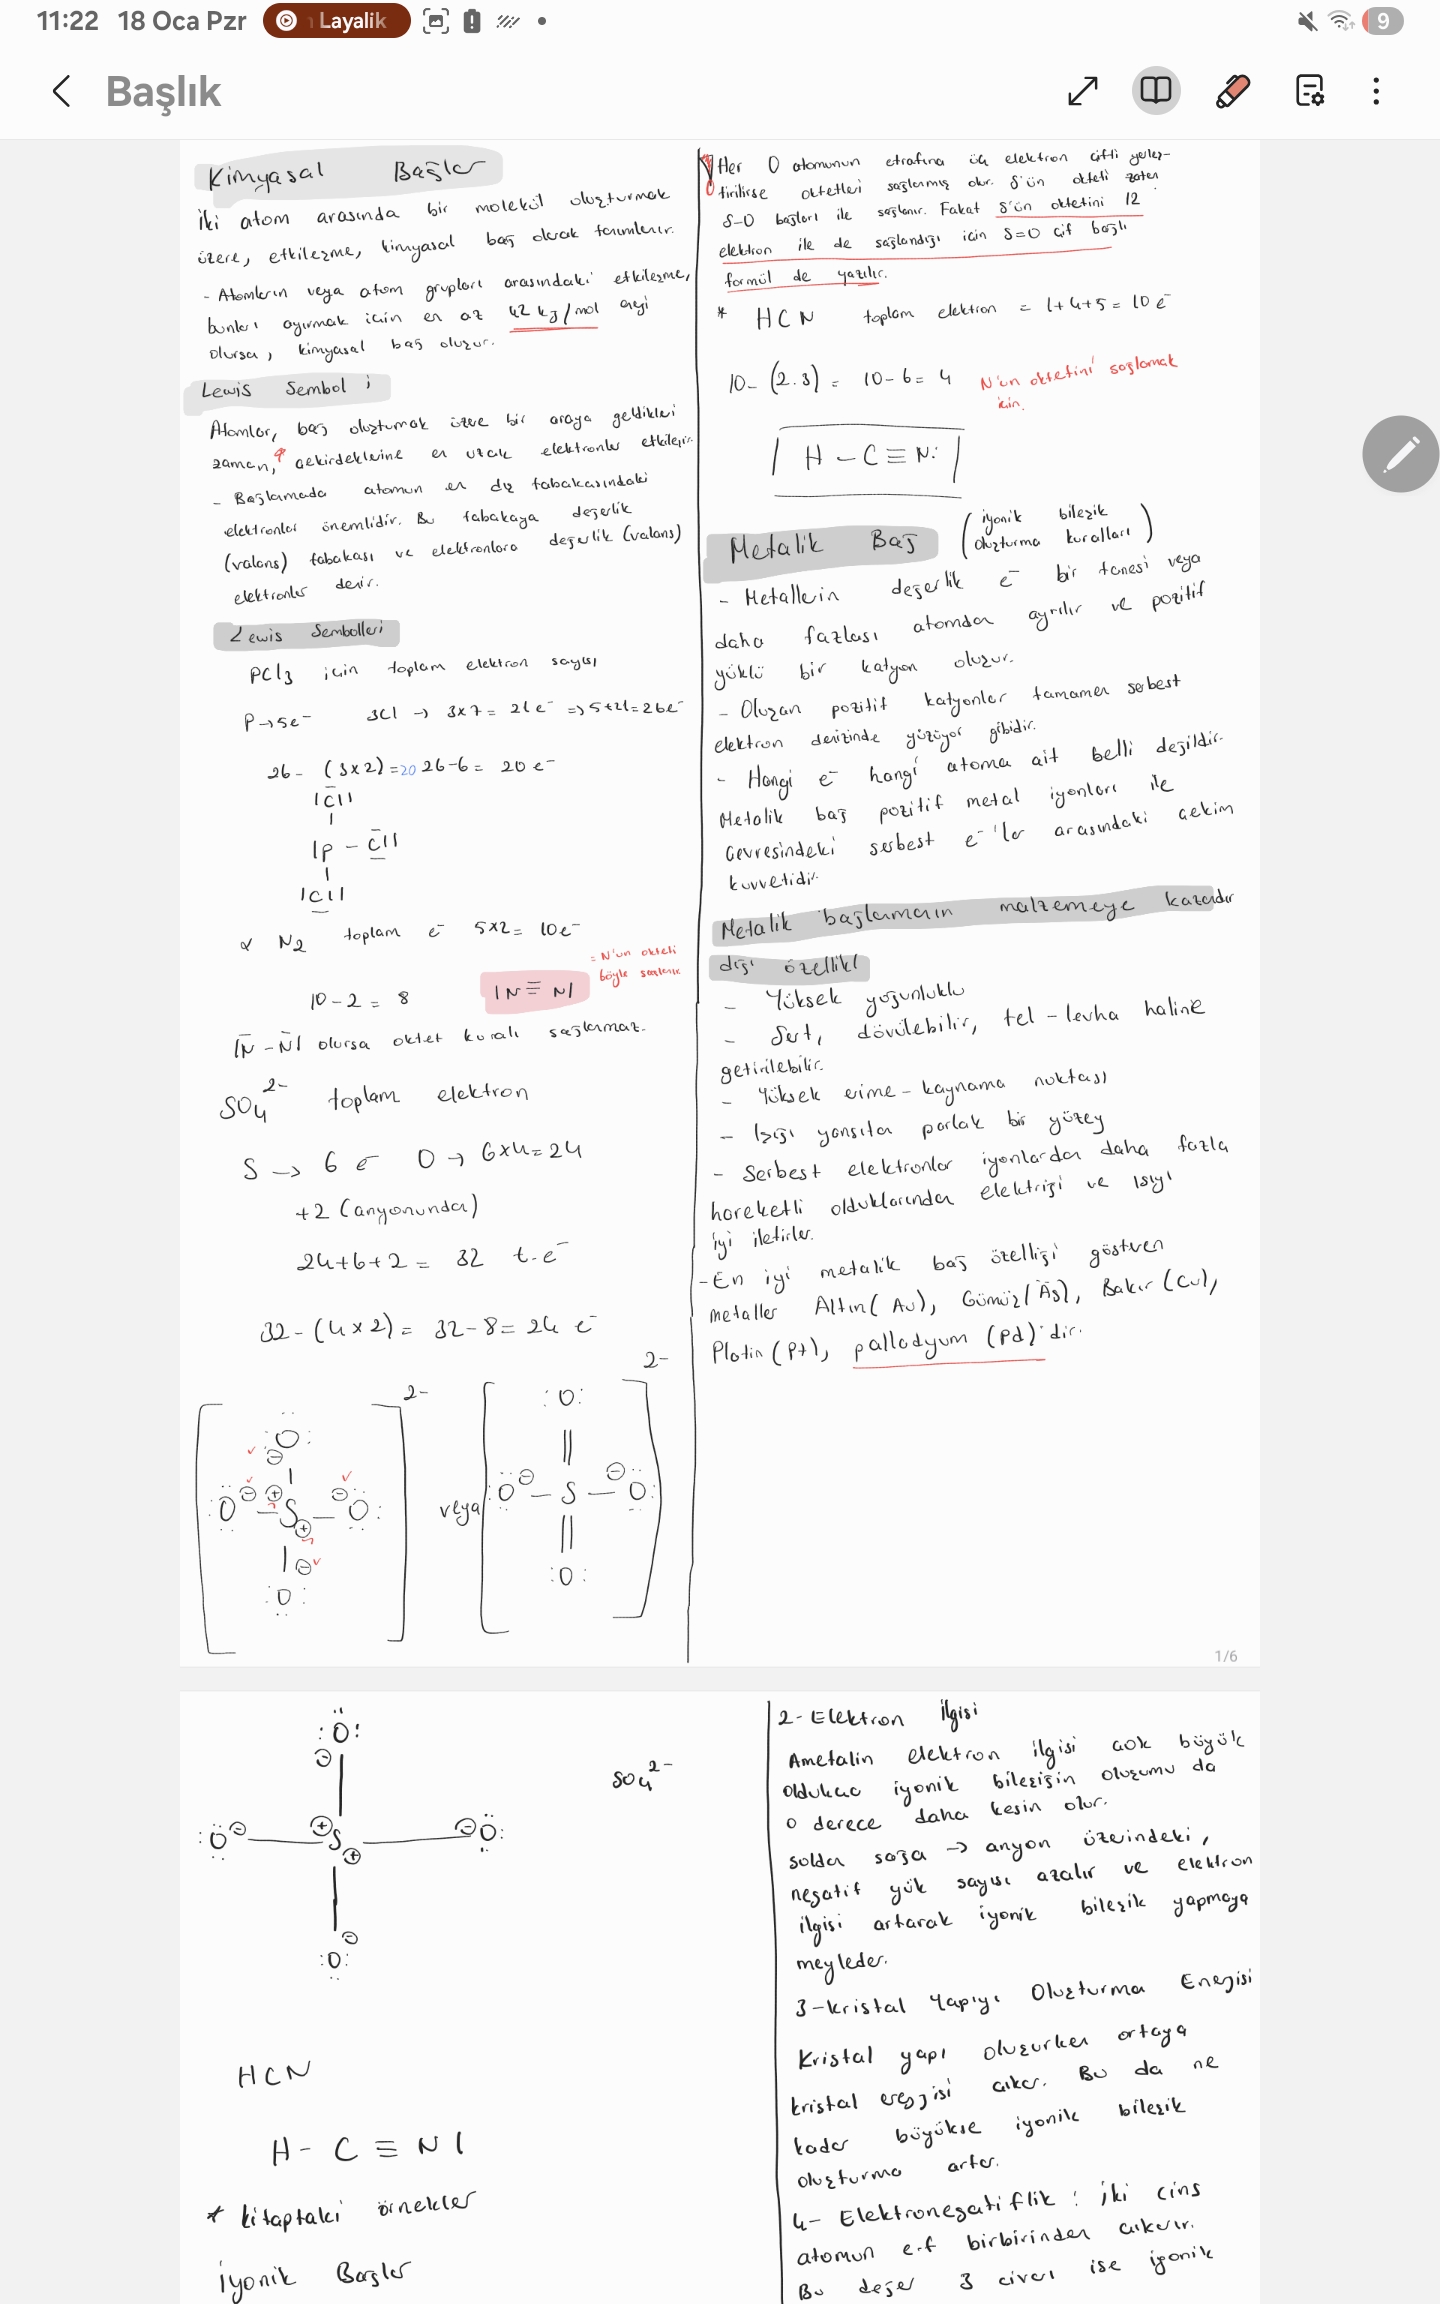 11:22 18 Oca Pzr Layalik 9
Başlık
Kimyasal Bağlar
İki atom arasında bir molekül oluşturmak
üzere, etkileşme, kimyasal bağ olarak tanımlanır.
- Atomların veya atom grupları arasındaki etkileşme,
bunları ayırmak için en az 42 kj/mol enerji
olursa, kimyasal bağ oluşur.
Lewis Sembolü
Atomlar, bağ oluşturmak üzere bir araya geldikleri
zaman, çekirdeklerine en uzak elektronlar etkileşir.
- Bağlamada atomun en dış tabakasındaki
elektronlar önemlidir. Bu tabakaya değerlik
(valans) tabakası ve elektronlara değerlik (valans)
elektronlar denir.
Lewis Sembolleri
PCl3 için toplam elektron sayısı
P→5e⁻ 3Cl → 3x7 = 21e⁻ => 5+21=26e⁻
26 - (3x2) =20 26-6 = 20 e⁻
|Cl|
|P - Cl|
|Cl|
* N2 toplam e⁻ 5x2 = 10e⁻
= N'un okteti
böyle sağlanır
10 - 2 = 8 |N≡N|
|N-N| olursa oktet kuralı sağlanmaz.
SO4²⁻ toplam elektron
S → 6 e⁻ O → 6x4=24
+2 (anyonundan)
24+6+2 = 32 t.e⁻
32 - (4x2) = 32-8 = 24 e⁻
2- 2-
:O: :O:
:O - S - O: veya :O - S - O:
:O: :O:
Her O atomunun etrafına üç elektron çifti yerleş-
tirilirse oktetleri sağlanmış olur. S'ün okteti zaten
S-O bağları ile sağlanır. Fakat S'ün oktetini 12
elektron ile de sağlandığı için S=O çif bağlı
formül de yazılır.
* HCN toplam elektron = 1+4+5 = 10 e⁻
10 - (2.3) = 10-6 = 4 N'un oktetini sağlamak
için.
H - C ≡ N:
Metalik Bağ (iyonik bileşik
oluşturma kuralları)
- Metallerin değerlik e⁻ bir tanesi veya
daha fazlası atomdan ayrılır ve pozitif
yüklü bir katyon oluşur.
- Oluşan pozitif katyonlar tamamen serbest
elektron denizinde yüzüyor gibidir.
- Hangi e⁻ hangi atoma ait belli değildir.
Metalik bağ pozitif metal iyonları ile
çevresindeki serbest e⁻'lar arasındaki çekim
kuvvetidir.
Metalik bağlamanın malzemeye kazandır
dığı özellikl
- Yüksek yoğunluklu
- Sert, dövülebilir, tel-levha haline
getirilebilir.
- Yüksek erime-kaynama noktası
- Işığı yansıtan parlak bir yüzey
- Serbest elektronlar iyonlardan daha fazla
hareketli olduklarından elektriği ve ısıyı
iyi iletirler.
- En iyi metalik bağ özelliği gösteren
metaller Altın(Au), Gümüş(Ag), Bakır(Cu),
Platin(Pt), palladyum (Pd)'dir.
1/6
:O:
SO4²⁻
:O - S - O:
:O:
HCN
H - C ≡ N |
* kitaptaki örnekler
İyonik Bağlar
2- Elektron İlgisi
Ametalin elektron ilgisi çok büyük
oldukça iyonik bileşiğin oluşumu da
o derece daha kesin olur.
soldan sağa → anyon üzerindeki,
negatif yük sayısı azalır ve elektron
ilgisi artarak iyonik bileşik yapmaya
meyleder.
3-Kristal Yapıyı Oluşturma Enerjisi
Kristal yapı oluşurken ortaya
kristal enerjisi çıkar. Bu da ne
kadar büyükse iyonik bileşik
oluşturma artar.
4- Elektronegatiflik : iki cins
atomun e.f birbirinden çıkarır.
Bu değer 3 civarı ise iyonik